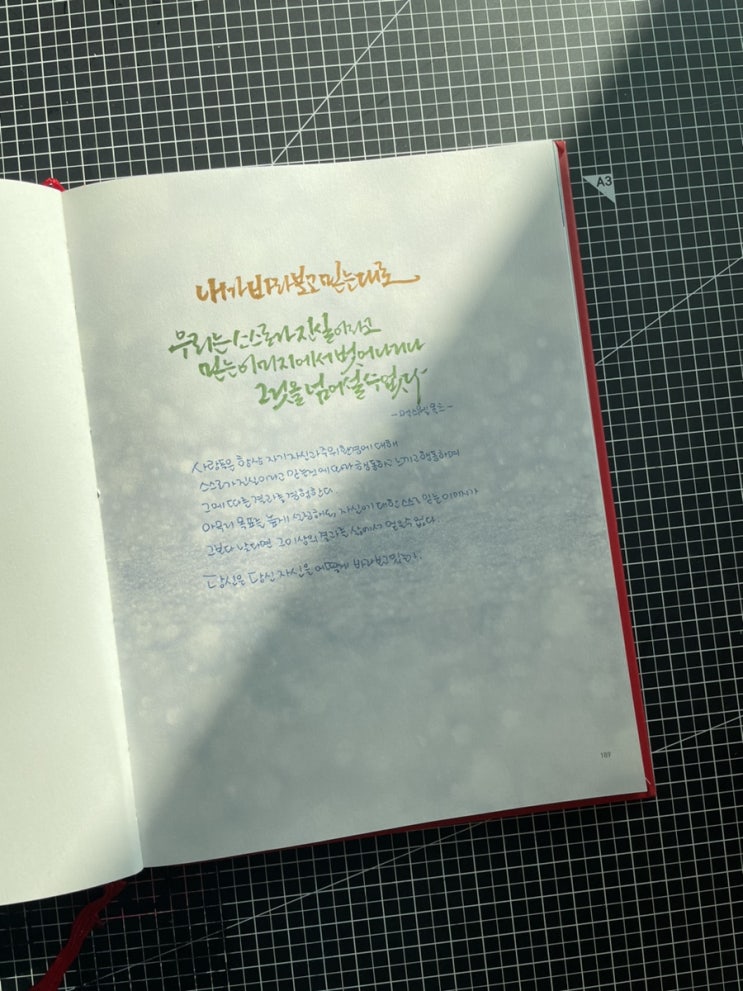 내가 바라보고 믿는대로
우리는 스스로가 진실이라고
믿는 이미지에서 벗어나거나
그것을 넘어설 수 없다
-맥스웰 몰츠-
사람들은 항상 자기 자신과 주위 환경에 대해
스스로가 진실이라고 믿는 것에 따라 행동하고 느끼고 행동하며
그에 따른 결과를 경험한다.
아무리 목표를 높게 설정해도, 자신에 대한 스스로 믿는 이미지가
그보다 낮다면 그 이상의 결과는 삶에서 얻을 수 없다.
당신은 당신 자신을 어떻게 바라보고 있는가.
189
A3